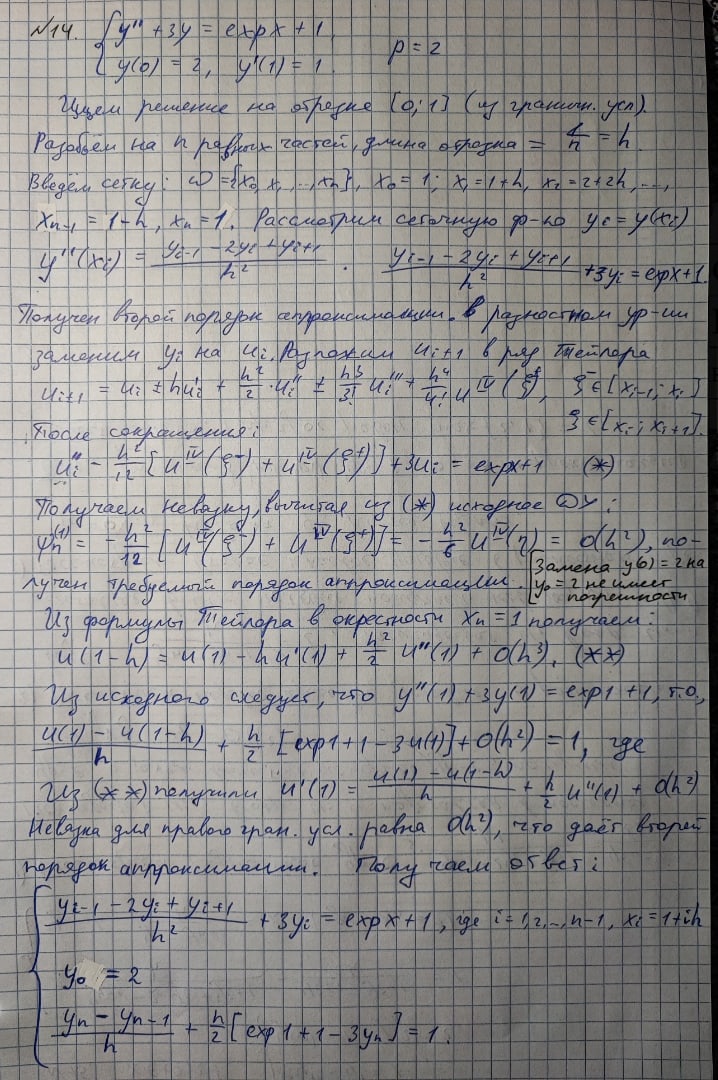 №14. { y'' + 3y = exp x + 1
y(0) = 2, y'(1) = 1. p = 2
Ищем решение на отрезке [0; 1] (из граничн. усл).
Разобьём на n равных частей, длина отрезка = 1/n = h.
Введём сетку: ω = {x₀, x₁, ..., xₙ}, x₀ = 1; x₁ = 1+h, x₂ = 2+2h, ...,
xₙ₋₁ = 1-h, xₙ = 1. Рассмотрим сеточную ф-ю yᵢ = y(xᵢ)
y''(xᵢ) = (yᵢ₋₁ - 2yᵢ + yᵢ₊₁)/h² . (yᵢ₋₁ - 2yᵢ + yᵢ₊₁)/h² + 3yᵢ = exp x + 1.
Получен второй порядок аппроксимации. В разностном ур-ии
заменим yᵢ на uᵢ. Разложим uᵢ±₁ в ряд Тейлора
uᵢ±₁ = uᵢ ± hu'ᵢ + h²/2 · uᵢ'' ± h³/3! uᵢ''' + h⁴/4! u^IV(ξ^±), ξ⁻ ∈ [xᵢ₋₁; xᵢ]
После сокращения: ξ ∈ [xᵢ; xᵢ₊₁].
uᵢ'' - h²/12 [u^IV(ξ⁻) + u^IV(ξ⁺)] + 3uᵢ = exp x + 1 (*)
Получаем невязку, вычитая из (*) исходное ДУ:
ψₕ^(1) = -h²/12 [u^IV(ξ⁻) + u^IV(ξ⁺)] = -h²/6 u^IV(η) = O(h²), по-
лучен требуемый порядок аппроксимации. [Замена y(0) = 2 на
y₀ = 2 не имеет
погрешности
Из формулы Тейлора в окрестности xₙ = 1 получаем:
u(1-h) = u(1) - hu'(1) + h²/2 u''(1) + O(h³). (**)
Из исходного следует, что y''(1) + 3y(1) = exp 1 + 1, т.о.,
(u(1) - u(1-h))/h + h/2 [exp 1 + 1 - 3u(1)] + O(h²) = 1, где
Из (**) получили u'(1) = (u(1) - u(1-h))/h + h/2 u''(1) + O(h²)
Невязка для правого гран. усл. равна O(h²), что даёт второй
порядок аппроксимации. Получаем ответ:
{ (yᵢ₋₁ - 2yᵢ + yᵢ₊₁)/h² + 3yᵢ = exp x + 1, где i = 1, 2, ..., n-1, xᵢ = 1+ih
y₀ = 2
(yₙ - yₙ₋₁)/h + h/2 [exp 1 + 1 - 3yₙ] = 1.